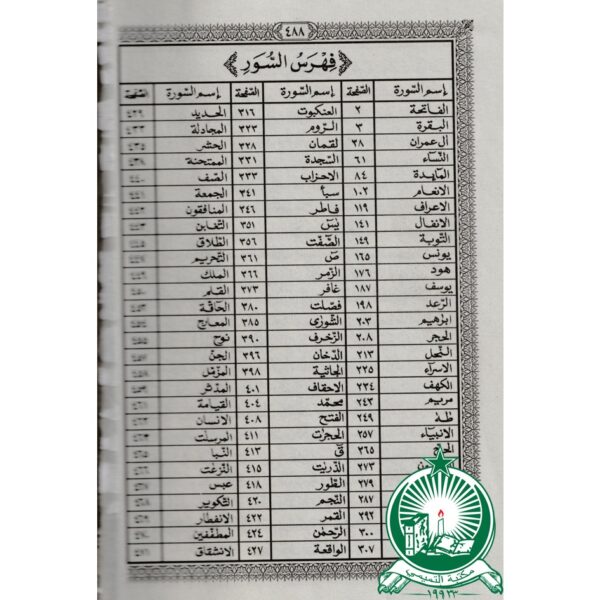 ٤٨٨
فِهْرَسُ السُّوَرِ
إسم السّورة الصّفحة إسم السّورة الصّفحة إسم السّورة الصّفحة
الفاتحة ٢ العنكبوت ٣١٦ الحديد
البقرة ٣ الرّوم ٣٢٣ المجادلة ٤٣٣
آل عمران ٣٨ لقمان ٣٢٨ الحشر ٤٣٥
النّساء ٦١ السّجدة ٣٣١ الممتحنة ٤٣٨
المايدة ٨٤ الاحزاب ٣٣٣ الصّف ٤٤٠
الانعام ١٠٢ سبأ ٣٤١ الجمعة ٤٤١
الاعراف ١١٩ فاطر ٣٤٦ المنافقون
الانفال ١٤١ يٰسٓ ٣٥١ التّغابن
التّوبة ١٤٩ الصّٰفّٰت ٣٥٦ الطّلاق
يونس ١٦٥ صٓ ٣٦١ التّحريم
هود ١٧٦ الزّمر ٣٦٦ الملك
يوسف ١٨٧ غافر ٣٧٣ القلم
الرّعد ١٩٨ فصّلت ٣٨٠ الحاقّة
ابراهيم ٢٠٣ الشّورٰى ٣٨٥ المعارج
الحجر ٢٠٨ الزّخرف ٣٩٠ نوح
النّحل ٢١٣ الدّخان ٣٩٦ الجنّ
الاسراء ٢٢٥ الجاثية ٣٩٨ المزّمّل
الكهف ٢٣٤ الاحقاف ٤٠١ المدّثّر
مريم ٢٤٣ محمّد ٤٠٤ القيامة
طٰهٰ ٢٤٩ الفتح ٤٠٨ الانسان
الانبياء ٢٥٧ الحجرٰت ٤١١ المرسلٰت
الحجّ ٢٦٥ قٓ ٤١٣ النّبأ
٢٧٣ الذّريٰت ٤١٥ النّٰزعٰت
٢٧٩ الطّور ٤١٨ عبس
٢٨٧ النّجم ٤٢٠ التّكوير
٢٩٢ القمر ٤٢٢ الانفطار
٣٠٠ الرّحمٰن ٤٢٤ المطفّفين
٣٠٧ الواقعة ٤٢٧ الانشقاق
مكتبة التسيسي